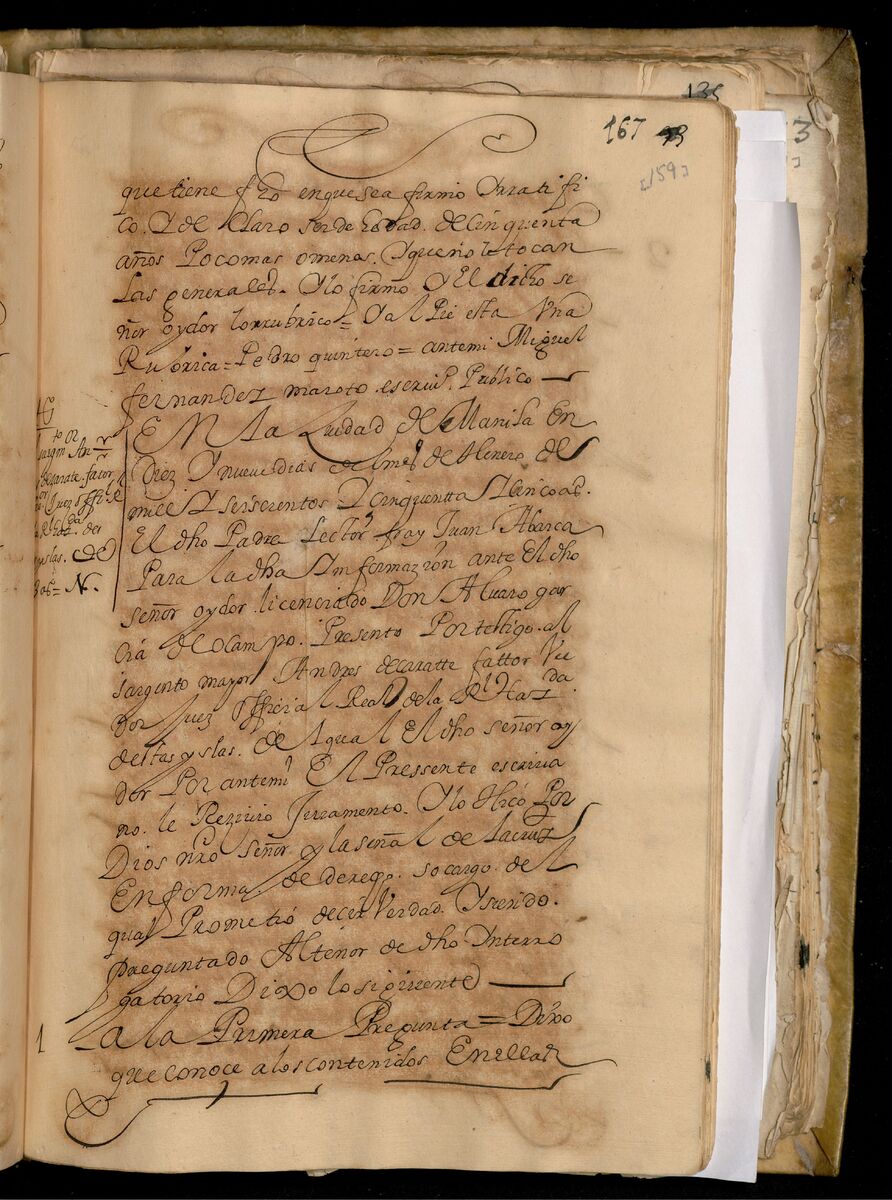 135
167 93
[159]
3
que tiene fho en que sea firmo Y rrati fi
co. Y de Claro ser de hedad. de cinquenta
años Poco mas o menos. Y que no le tocan
Las generales. Y lo firmo y El dicho se
ñor oydor lo rrubrico = Y al Pie esta Vna
Rubrica = Pedro quintero = ante mi Miguel
fernandez maroto. escriuo. Publico —
En la Ciudad de Manila En
Diez Y nueue dias del mes de Henero de
mill Y seiscientos Y cinquentta Y cinco as.
El dho Padre Lector fray Juan Abarca
Para la dha Informazion ante El dho
señor oydor licenciado Don Aluaro gar
cia de ocampo. Presento Por testigo. al
sargento mayor Andres de caratte fattor Vee
dor Juez official Real de la Rl Hazda.
destas yslas. del qual El dho señor oy
dor Por ante mi El Pressente escriua
no. le Reziuio Jurramento. Y lo Hico Por
Dios nro señor y la señal de la cruz
En forma. de derecho. so cargo. del
qual Prometio decir Verdad. Y siendo.
Preguntado Al tenor de dho Interro
gatorio Dixo lo siguiente —
1 A la Primera Pregunta = Dixo
que conoce a los contenidos En ella
sargto mor An
de carate. fator
Juez offil
la Rl hazda des
yslas. de
as = N.